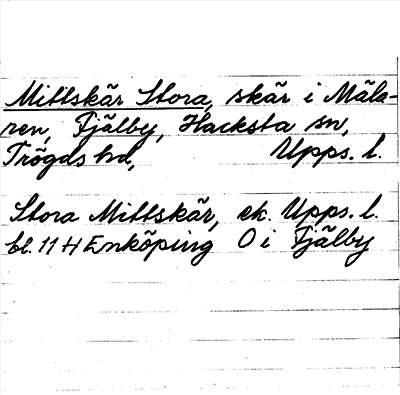 Mittskär Stora, skär i Mäla-
ren, Fjälby, Hacksta sn,
Trögds hd, Upps. l.
Stora Mittskär, ek. Upps. l.
bl. 11 H Enköping O i Fjälby